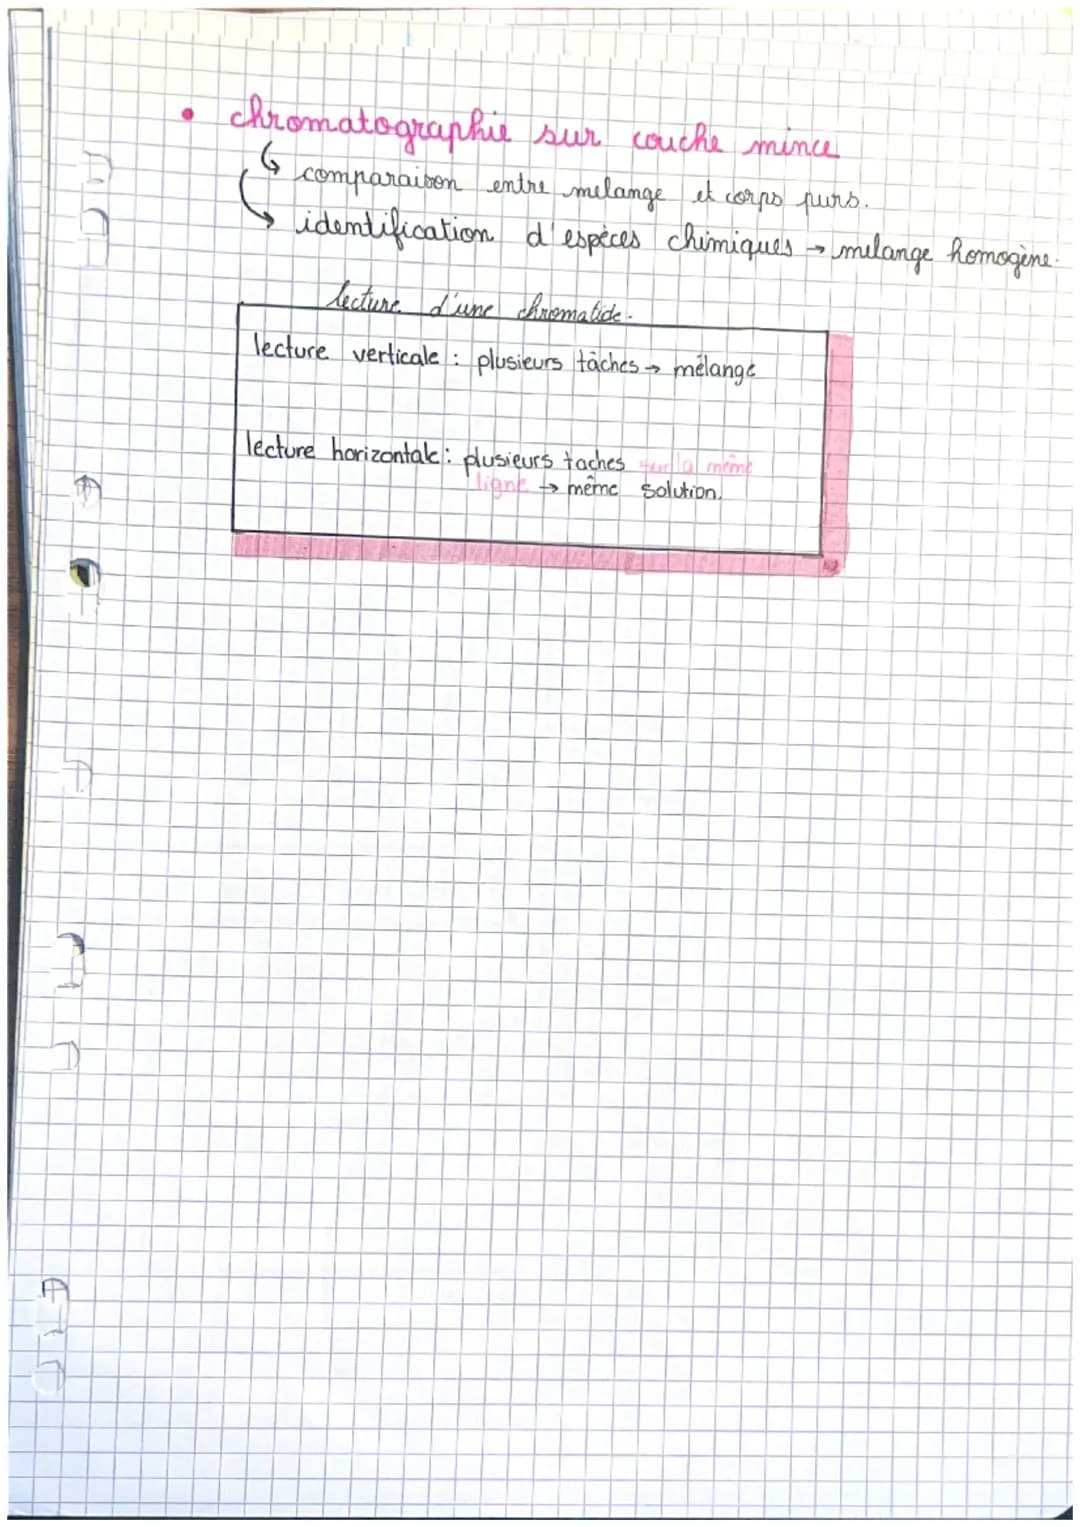 • chromatographie sur couche mince
↳ comparaison entre melange et corps purs.
↳ identification d'espèces chimiques → melange homogène.
lecture d'une chromatide.
lecture verticale : plusieurs tâches → mélange
lecture horizontale : plusieurs taches sur la même
ligne → même solution.